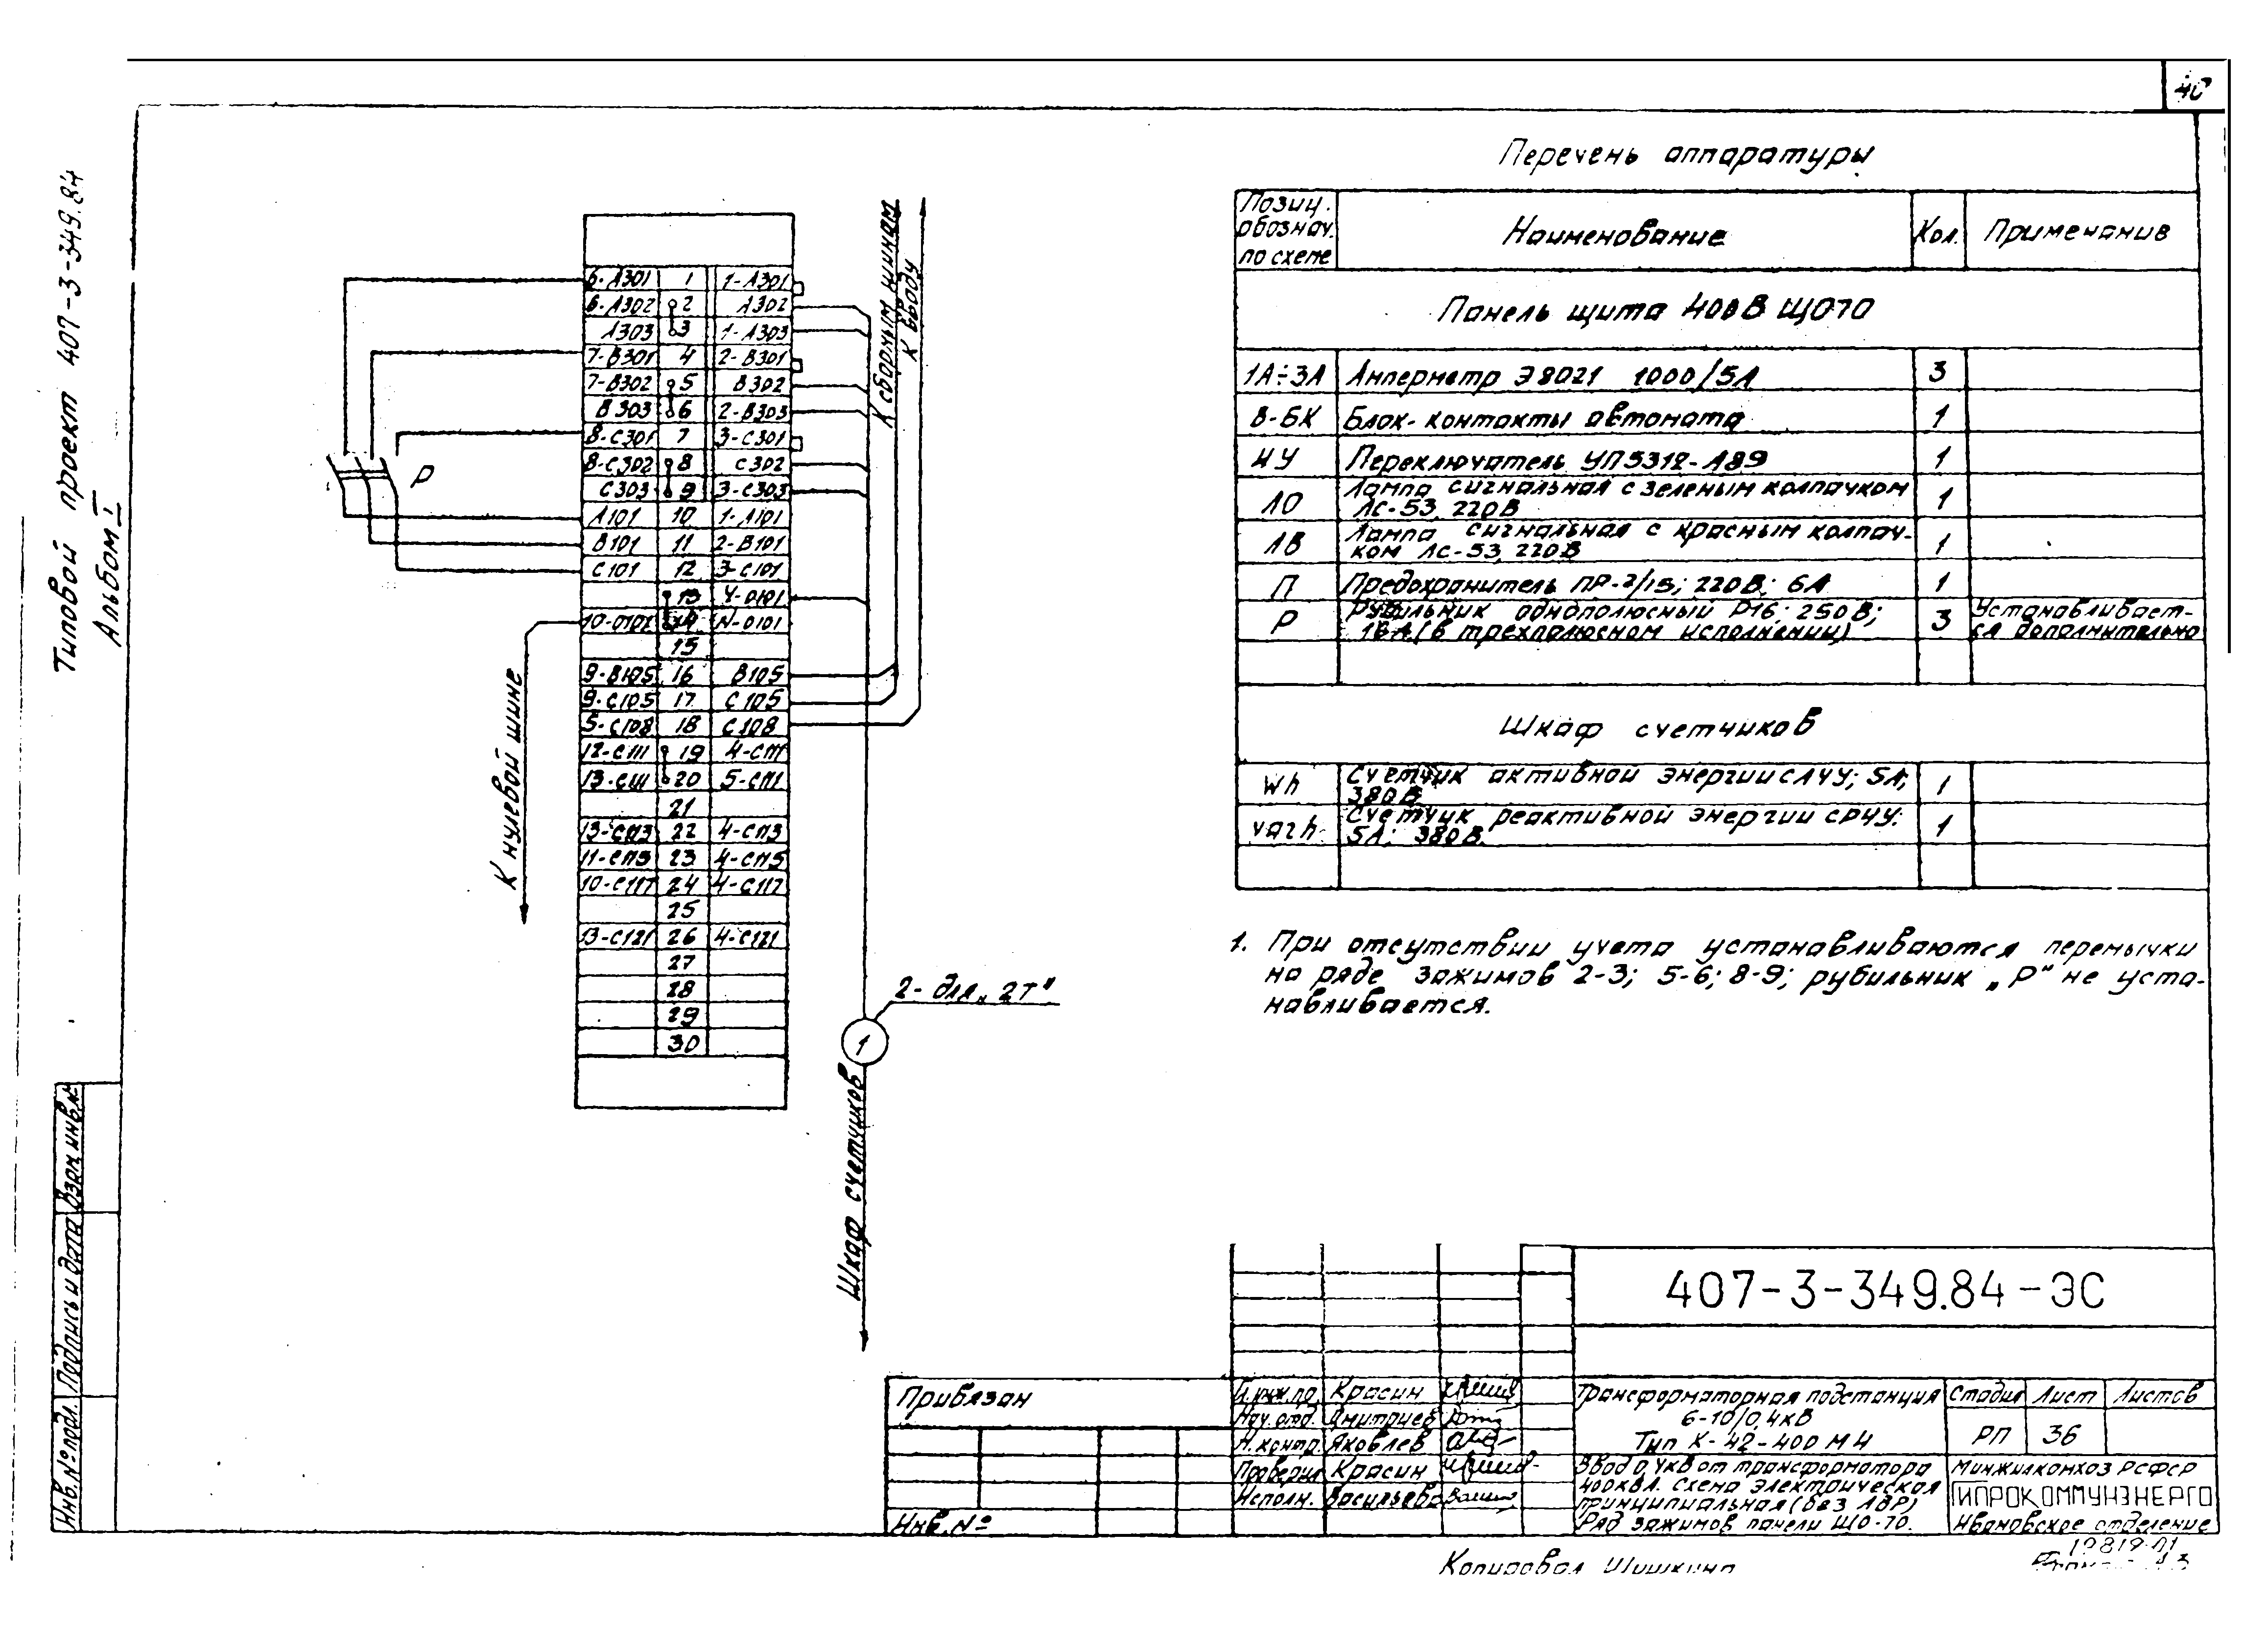 40
Типовой проект 407-3-349.84
Альбом I
Перечень аппаратуры
Позиц. обознач. по схеме | Наименование | Кол. | Примечание
Панель щита 400В ЩО70
1А÷3А | Амперметр Э8021 1000/5А | 3
В-БК | Блок-контакты автомата | 1
ИУ | Переключатель УП5312-А89 | 1
ЛО | Лампа сигнальная с зеленым колпачком
ЛС-53, 220В | 1
ЛВ | Лампа сигнальная с красным колпач-
ком ЛС-53, 220В | 1
П | Предохранитель ПР-2/15; 220В; 6А | 1
Р | Рубильник однополюсный Р16; 250В; | 3 | Устанавливает-
16А (в трехполюсном исполнении) | ся дополнительно
Шкаф счетчиков
Wh | Счетчик активной энергии СА4У; 5А;
380В | 1
varh | Счетчик реактивной энергии СР4У;
5А; 380В | 1
1. При отсутствии учета устанавливаются перемычки
на ряде зажимов 2-3; 5-6; 8-9; рубильник „Р" не уста-
навливается.
6-А301 | 1 | 1-А301
6-А302 | 2 | А302
А303 | 3 | 1-А303
7-В301 | 4 | 2-В301
7-В302 | 5 | В302
В303 | 6 | 2-В303
8-С301 | 7 | 3-С301
8-С302 | 8 | С302
С303 | 9 | 3-С303
А101 | 10 | 1-А101
В101 | 11 | 2-В101
С101 | 12 | 3-С101
13 | 4-0101
14 | N-0101
15
9-В105 | 16 | В105
9-С105 | 17 | С105
5-С108 | 18 | С108
12-С111 | 19 | 4-С111
13-С111 | 20 | 5-С111
21
13-С113 | 22 | 4-С113
23 | 4-С115
10-С117 | 24 | 4-С117
25
13-С121 | 26 | 4-С121
27
28
29
30
Р
К нулевой шине
К сборным шинам
К вводу
2- для „2Т"
1
Шкаф счетчиков
Инв.№подл. | Подпись и дата | Взам.инв.№
Привязан
Инв.№
407-3-349.84-ЭС
Гл.инж.пр. | Красин
Нач.отд. | Дмитриев
Н.контр. | Яковлев
Проверил | Красин
Исполн. | Васильева
Трансформаторная подстанция
6-10/0,4кВ
Тип К-42-400 М4
Стадия | Лист | Листов
РП | 36
Ввод 0,4кВ от трансформатора
400кВА. Схема электрическая
принципиальная (без АВР)
Ряд зажимов панели ЩО-70.
Минжилкомхоз РСФСР
ГИПРОКОММУНЭНЕРГО
Ивановское отделение
Копировал Шишкина
19819-01